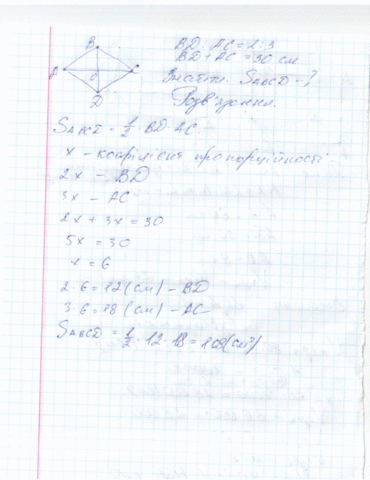 B
A
O
C
D
BD : AC = 2 : 3
BD + AC = 30 см
Знайти: SABCD - ?
Розв'язання.
SABCD = 1/2 · BD · AC.
x - коефіцієнт пропорційності
2x - BD
3x - AC
2x + 3x = 30
5x = 30
x = 6
2 · 6 = 12 (см) - BD
3 · 6 = 18 (см) - AC
SABCD = 1/2 · 12 · 18 = 108 (см²)